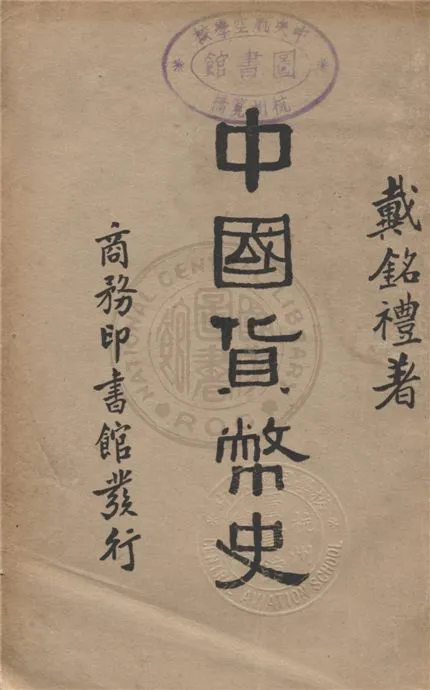 中央航空學校
圖書館
杭州筧橋
戴銘禮著
中國貨幣史
商務印書館發行
NATIONAL CENTRAL LIBRARY
R.O.C
AVIATION SCHOOL